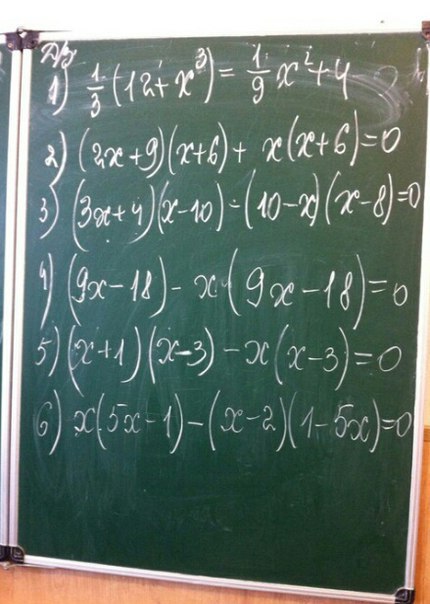 Д/з
1) 1/3 (12+x³) = 1/9 x²+4
2) (2x+9)(x+6)+ x(x+6)=0
3) (3x+4)(x-10)-(10-x)(x-8)=0
4) (9x-18)- x (9x-18)=0
5) (x+1)(x-3) - x(x-3)=0
6) x(5x-1)-(x-2)(1-5x)=0